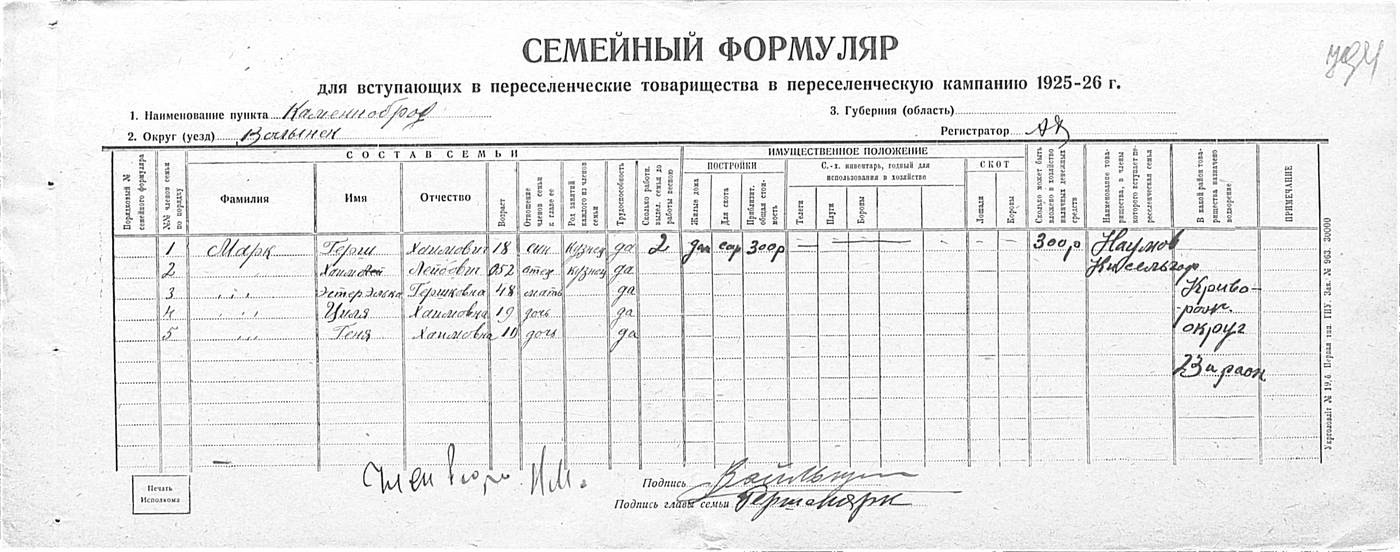 СЕМЕЙНЫЙ ФОРМУЛЯР
для вступающих в переселенческие товарищества в переселенческую кампанию 1925-26 г.
1. Наименование пункта Каменноброд
3. Губерния (область)
2. Округ (уезд) Волынск
Регистратор
СОСТАВ СЕМЬИ
ИМУЩЕСТВЕННОЕ ПОЛОЖЕНИЕ
Порядковый № семейного формуляра
№№ членов семьи по порядку
Фамилия
Имя
Отчество
Возраст
Отношение членов семьи к главе ее
Род занятий каждого из членов семьи
Трудоспособность
Сколько работн. выдел. семья до работы весною
ПОСТРОЙКИ
Жилые дома
Для скота
Приблизит. общая стоимость
С.-х. инвентарь, годный для использования в хозяйстве
Телеги
Плуги
Бороны
СКОТ
Лошади
Коровы
Сколько может быть вложено в хозяйство наличных денежных средств
Наименование товарищества, в члены которого вступает переселенческая семья
В какой район товарищества назначено водворение
ПРИМЕЧАНИЕ
1 Марк Герш Хаимович 18 сын кузнец да 2 да сар 300р — — — — — — 300р Наумов
2 " " " Хаим Лейбович 52 отец кузнец да Кисельгоф
3 " " " Эстер Элька Гершковна 48 мать да Криво-
4 " " " Циля Хаимовна 19 дочь да рож.
5 " " " Геня Хаимовна 10 дочь да округ
Печать Исполкома
Член Бюро
Подпись
Подпись главы семьи Герш Марк
Укрголовліт № 19.6 Первая тип. ГПУ. Зак. № 963. 30000